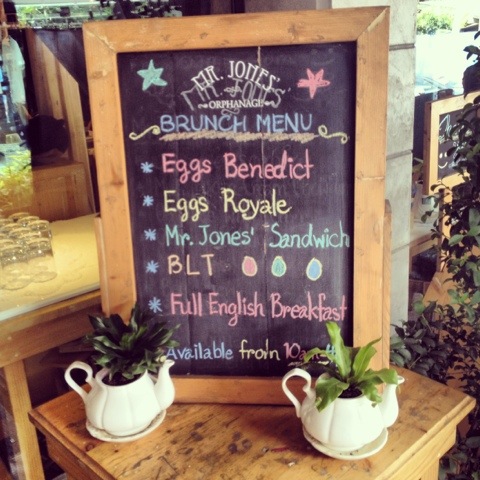 MR. JONES'
ORPHANAGE
BRUNCH MENU
* Eggs Benedict
* Eggs Royale
* Mr. Jones' Sandwich
* BLT
* Full English Breakfast
Available from 10am